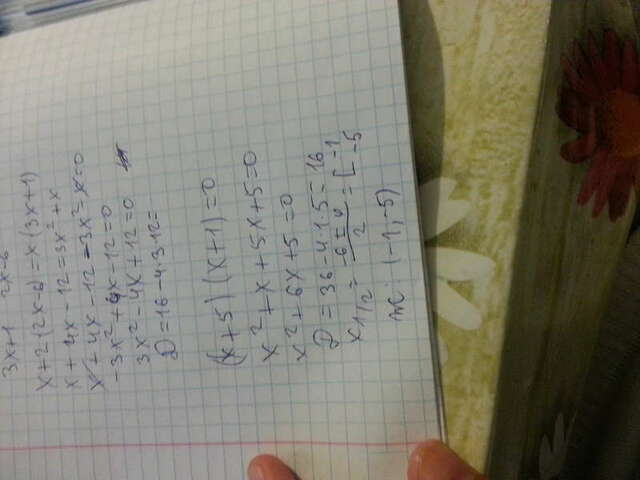 3x+1 2x-6
x+2(2x-6)=x(3x+1)
x+4x-12=3x²+x
x+4x-12-3x²-x=0
-3x²+4x-12=0
3x²-4x+12=0
D=16-4·3·12=
(x+5)(x+1)=0
x²+x+5x+5=0
x²+6x+5=0
D=36-4·1·5=16
x1/2=(-6±4)/2=[-1 -5
(-1,-5)